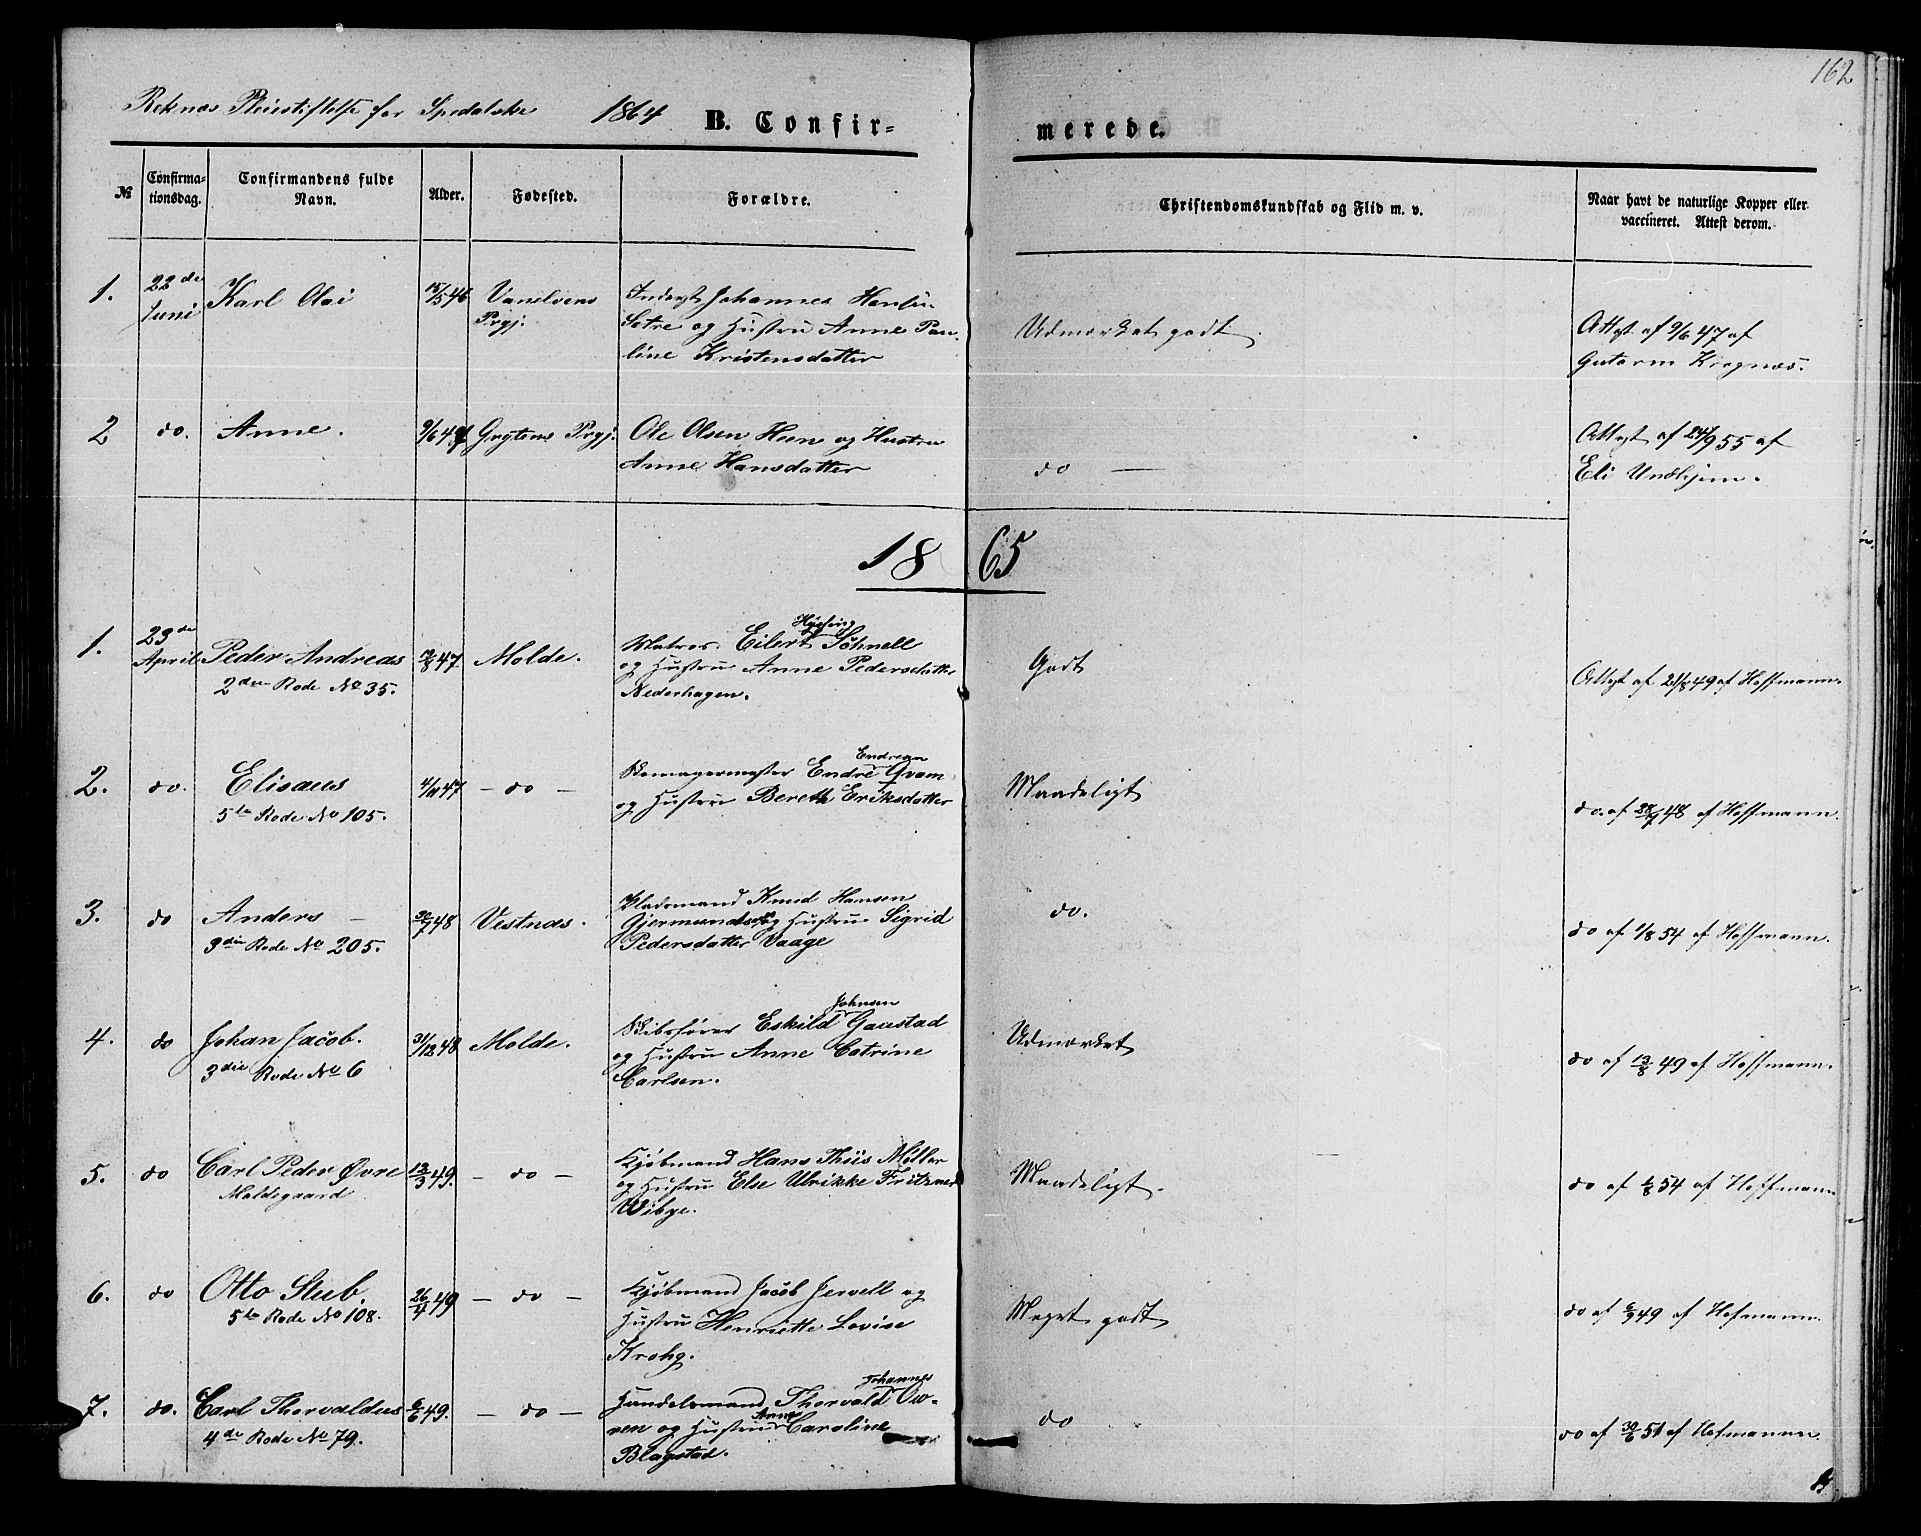 162
Reknæs Pleiestiftelse for Spedalske 1864 B. Confir=
merede.
№ Confirma-tionsdag. Confirmandens fulde Navn. Alder. Fødested. Forældre. Christendomskundskab og Flid m. v. Naar havt de naturlige Kopper eller vaccineret. Attest derom.
1. 22de Juni Karl Olai 15/5 46 Vanelvens Prgj.
Inderst Johannes Hansen
Sætre og Hustru Anne Pau-
line Kristensdatter
Udmærket godt.
Attest af 9/6 47 af
Gutorm Krognæs.
2 do. Anne. 9/6 49 Grytens Prgj.
Ole Olsen Heen og Hustru
Anne Hansdatter
do —
Attest af 24/9 55 af
Eli Undhjem.
1865
1. 23de April Peder Andreas
2den Rode No 35.
47. Molde.
Matros Eilert Søhnell
og Hustru Anne Pedersdatter
Nederhagen.
Godt
Attest af 21/8 49 af Hoffmann.
2. do. Elisæus
5te Rode No 105.
4/11 47 — do —
Endresen
Endre Qvam
og Hustru Bereth Eriksdatter
Maadeligt
do. af 48 af Hoffmann.
3. do Anders —
3die Rode No 205.
30/7 48 Vestnæs.
Pladsmand Knud Hansen
Gjermundnæs og Hustru Sigrid
Pedersdatter Vaage
do.
do af 1/8 54 af Hoffmann.
4. do Johan Jacob.
3die Rode No 6
31/12 48 Molde.
Johnsen
Skibsfører Eskild Gaustad
og Hustru Anne Catrine
Carlsen.
Udmærket
do af 13/8 49 af Hoffmann.
5. do Carl Peder Øvre
Moldegaard
13/3 49. — do —
Kjøbmand Hans Thiis Møller
og Hustru Else Ulrikke Fritzner
Wibye.
Maadeligt.
do af 54 af Hoffmann
6. do Otto Stub.
5te Rode No 108.
26/4 49 — do —
Kjøbmand Jacob Jervell og
Hustru Henriette Lovise
Krohg.
Meget godt
do af 6/9 49 af Hofmann.
7. do. Carl Thorvaldus
4de Rode No 79.
6/6 49. — do —
Johannes
Handelsmand Thorvald Ow-
ren og Hustru Anne Caroline
Blagstad.
do
do af 30/6 51 af Hofmann.